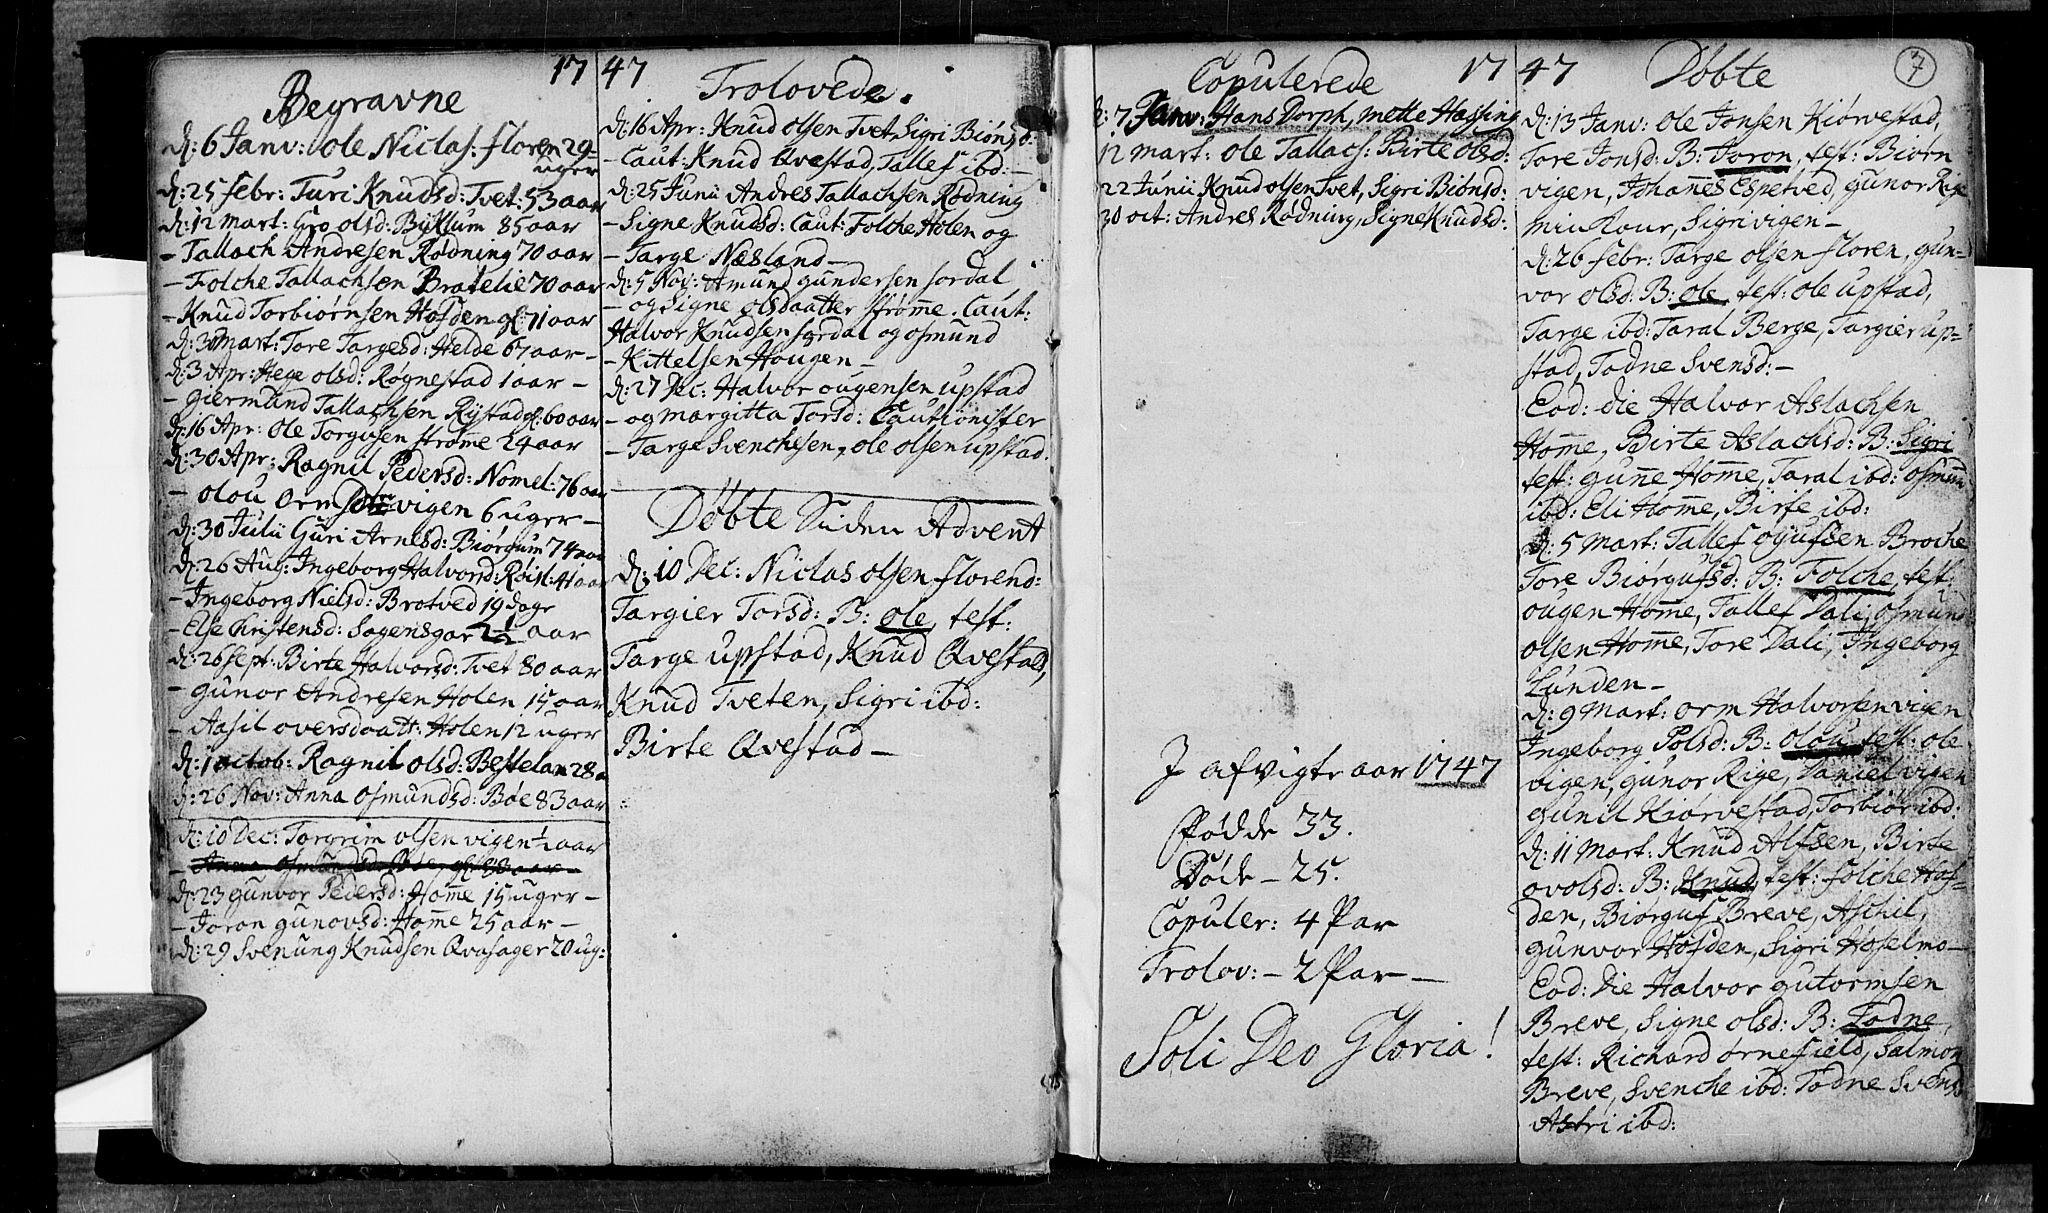 17 47
Begravne
d: 6 Janv: ole Niclas: floren 29
uger
d: 25 febr: Turi Knudsd: Tvet: 53 aar
d: 12 mart: Gro olsd: Byklum 85 aar
- Tallach Andresen Rødning 70 aar
- Folche Tallachsen Bratelie 70 aar
- Knud Torbiørnsen Hofden gl: 71 aar
d: 30 mart: Tore Targesd: Helde 67 aar -
d: 3 Apr: Hege olsd: Røgnestad 1 aar -
- giermund Tallachsen Rystad gl: 60 aar
d: 16 Apr: ole Torgusen strøme 24 aar
d: 30 Apr: Ragnil Pedersd: Nomel: 76 aar
- olou orms vigen 6 uger -
d: 30 Julii Guri Arnesd: Biørgum 74 aar
d: 26 Aug: Ingeborg Halvorsd: Røisl: 41 aar
- Ingeborg Nielsd: Brotved 19 dage
- Else Christensd: Sagensgar 2 1/2 aar
d: 26 sept: Birte Halvorsd: Tvet 80 aar
- gunor Andresen Holen 15 aar
- Aasil oversdaatt: Holen 12 uger
d: 1 octob: Ragnil olsd: Bestelan 28 a
d: 26 Nov: Anna osmundsd: Bøe 83 aar
d: 10 Dec: Torgrim olsen vigen 1/2 aar
- Anna osmundsd: Bøe gl: aar -
d: 23 gunvor Pedersd: Home 15 uger -
- Joron gunovsd: Home 25 aar -
d: 29 Svenung Knudsen Qvasager 20 ug:
Trolovede.
d: 16 Apr: Knud olsen Tvet, Sigri Biøns d:
- Caut: Knud Qvestad, Tallef ibd: -
d: 25 Junii Andres Tallachsen Rødning
- Signe Knudsd: Caut: Folche Holen og
- Targe Næsland -
d: 5 Nov: Amund gundersen sordal
- og Signe olsdaatter strøme. Caut:
Halvor Knudsen sordal og osmund
- Kittelsen Hougen -
d: 27 Dec: Halvor ougensen upstad
- og margitta Torsd: Cautionister
- Targe Svenchesen, ole olsen upstad.
Døbte Siden Advent
d: 10 Dec: Niclas olsen florend:
Targier Torsd: B: ole, test:
Targe upstad, Knud Qvestad,
Knud Tveten, Sigri ibd:
Birte Qvestad -
17 47
Copulerede
d: 7 Janv: Hans Dorph, mette Hassing
12 mart: ole Tallacs: Birte olsd:
22 Junii Knud olsen Tvet, Sigri Biønsd:
30 oct: Andres Rødning, Signe Knudsd:
I afvigte aar 1747
Fødde 33.
Døde - 25.
Copuler: 4 Par
Trolov: - 2 Par -
Soli Deo Gloria!
Døbte
7
d: 13 Janv: ole Jonsen Kiørvestad,
Tore Jonsd: B: Joron, test: Biørn
vigen, Johanes Espetved, gunor Rige
min Kour, Sigri vigen -
d: 26 febr: Targe olsen floren, gun-
vor olsd: B: ole, test: ole upstad,
Targe ibd: Taral Berge, Targier up-
stad, Todne Svensd: -
Eod: die Halvor Aslachsen
Home, Birte Aslachsd: B: Sigri
test: gune Home, Taral ibd: osmun
ibd: Eli Home, Birte ibd:
d: 5 Mart: Tallef oyufsen Broche
Tore Biørgufsd: B: Folche, test:
ougen Home, Tallef Dali, osmund
olsen Home, Tore Dali, Ingeborg
Lunden -
d: 9 Mart: orm Halvorsen vigen
Ingeborg Polsd: B: olou test: ole
vigen, gunor Rige, Daniel vigen
gunil Kiørvestad, Torbiør ibd:
d: 11 Mart: Knud Alfsen, Birte
ovolsd: B: Knud, test: folche Hof-
den, Biørguf Breve, Aschil,
gunvor Hofden, Sigri Hoselmo -
Eod: Die Halvor gutormsen
Breve, Signe olsd: B: Todne,
test: Richard ørnefield, Salmon
Breve, Svenche ibd: Todne Svensd
Astri ibd: